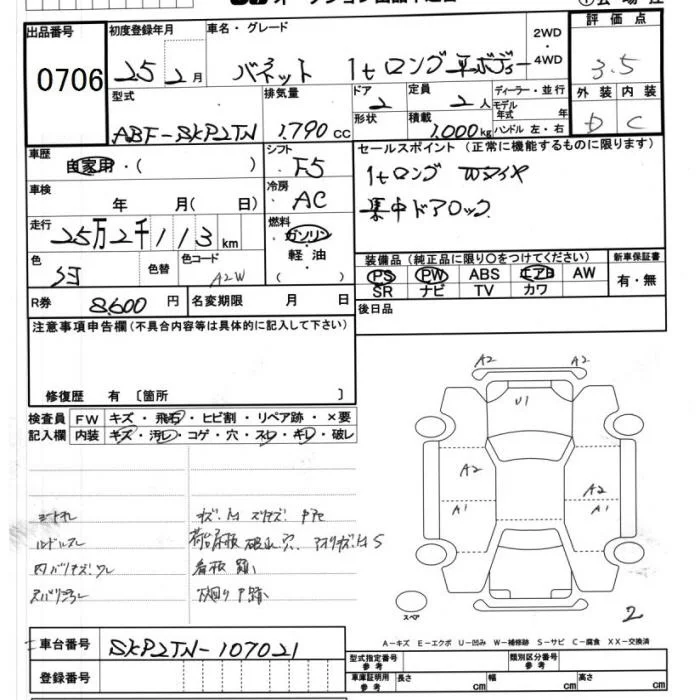 出品番号 初度登録年月 車名・グレード 2WD・4WD 評価点
0706 25 2月 バネット 1tロング平ボデー 3.5
型式 排気量 ドア 定員 ディーラー・並行 外装 内装
ABF-SKP2TN 1,790cc 2 2人 モデル年式 年 D C
形状 積載 1,000kg ハンドル 左・右
車歴 自家用・( ) シフト F5
セールスポイント (正常に機能するものに限ります)
1tロング Wタイヤ
集中ドアロック
車検 年 月(日) 冷房 AC
走行 25万2千113km 燃料 ガソリン・軽油 ( )
装備品 (純正品に限り○をつけてください) 新車保証書
PS PW ABS エアB AW 有・無
SR ナビ TV カワ
色 色替 色コード A2W
R券 8,600円 名変期限 月 日
後日品
注意事項申告欄(不具合内容等は具体的に記入して下さい)
修復歴 有 〔箇所 〕
検査員 FW キズ・飛石・ヒビ割・リペア跡・×要
記入欄 内装 キズ・汚レ・コゲ・穴・スレ・キレ・破レ
A2 A2
U1
A2 A2
A1 A1
スペア
2
A-キズ E-エクボ U-凹み W-補修跡 S-サビ C-腐食 XX-交換済
車台番号 SKP2TN-107021
登録番号
型式指定番号 参考 類別区分番号 参考
車庫証明用 参考 長さ cm 幅 cm 高さ cm